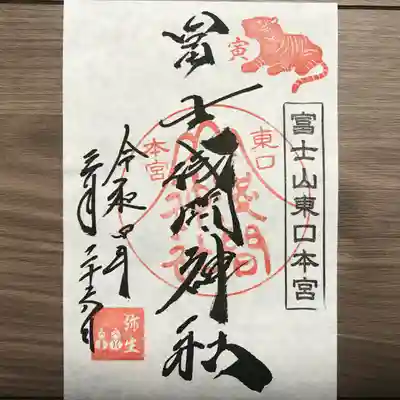 寅
富士山東口本宮
冨士浅間神社
東口
本宮
令和四年
三月二十六日
弥生